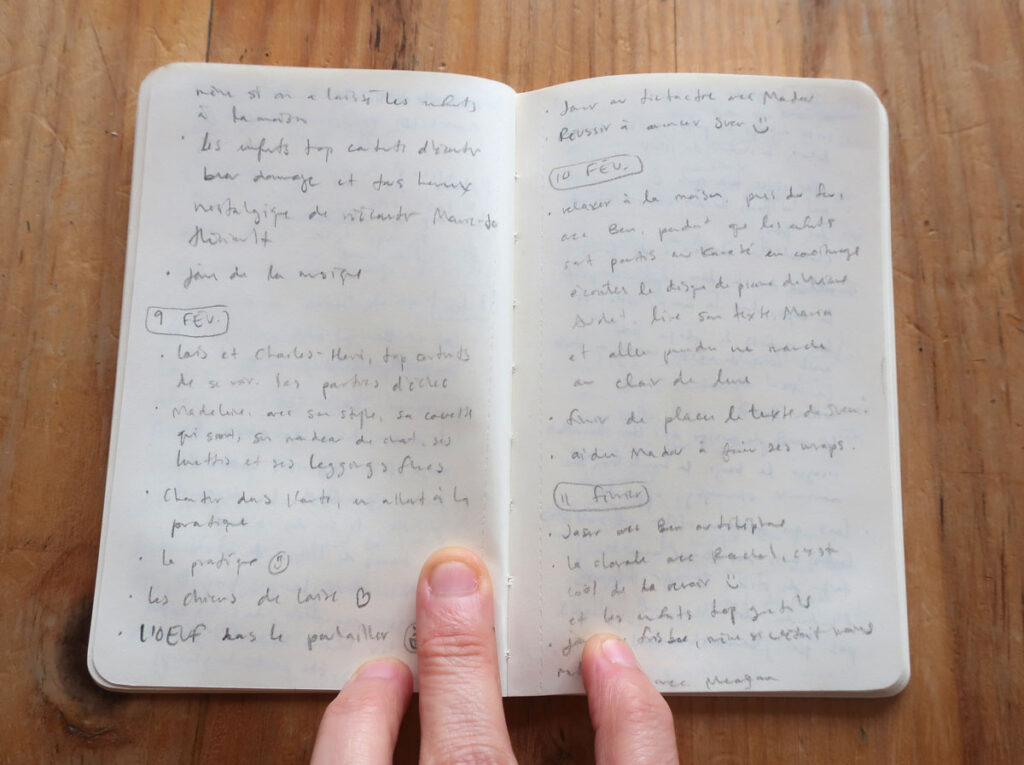 même si on a laissé les enfants
à la maison
• les enfants trop contents d'écouter
bear dommage et très heureux
nostalgique de réécouter Marie-Jo
Thériault
• jouer de la musique
9 FÉV.
• Laïs et Charles-Henri, trop contents
de se voir. les parties d'échec
• Madeleine, avec son style, sa
qui sent, son de chat, ses
lunettes et ses leggings
• Chanter dans l'auto, en allant à la
pratique
• la pratique
• les chiens de Laïse ♡
• L'OEUF dans le poulailler
• Jouer au tictactoe avec Mador
• Réussir à avancer
10 FÉV.
• relaxer à la maison, près du feu,
avec Ben, pendant que les enfants
sont partis au Karaté en covoiturage
écouter le disque de piano de
Audet, lire son texte, Maria
et aller prendre une marche
au clair de lune
• finir de placer le texte de
• aider Mador à faire ses wraps.
11 février
• Jaser avec Ben au téléphone
• La chorale avec Rachel, c'est
cool de la revoir
et les enfants trop gentils
• frisbee, même si c'était
avec Meagan